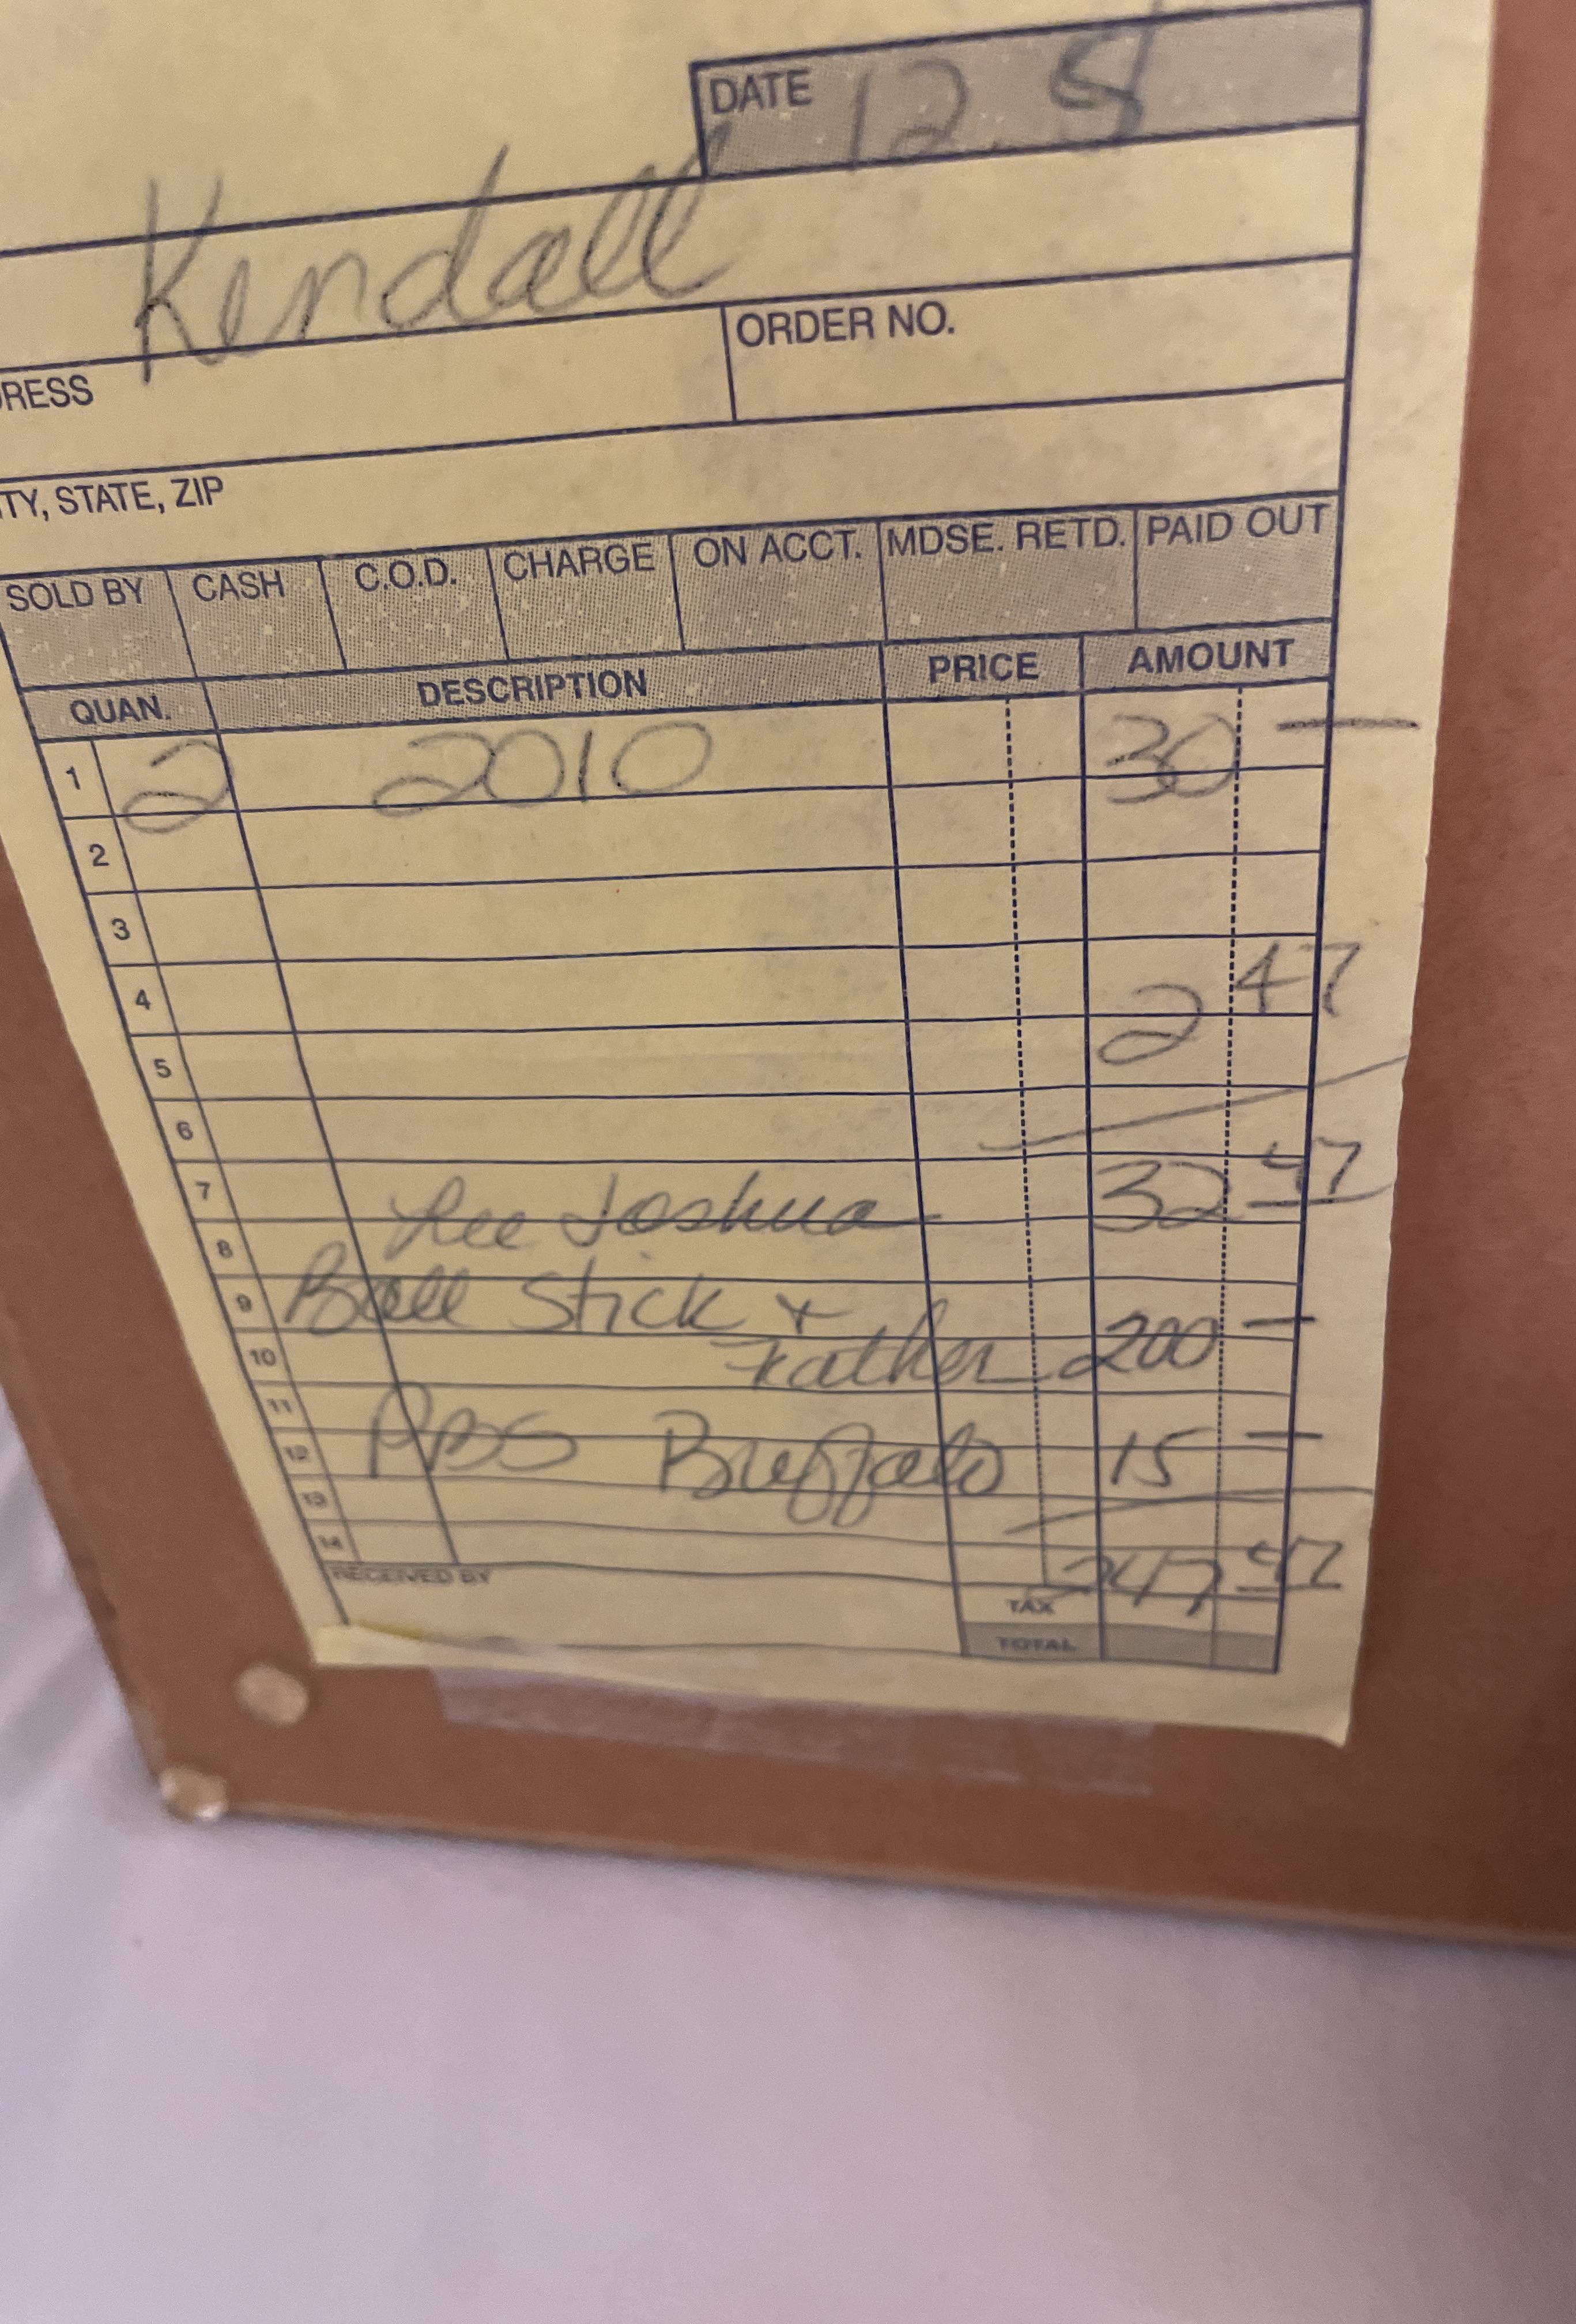 DATE 12.8
Kendall
RESS
ORDER NO.
TY, STATE, ZIP
SOLD BY CASH C.O.D. CHARGE ON ACCT. MDSE. RETD. PAID OUT
QUAN. DESCRIPTION PRICE AMOUNT
1 2 2010 30 —
2
3
4 2 47
5
6
7 Lee Joshua 32 47
8
9 Ball Stick +
10 Father 200 —
11
12 PBS Buffalo 15 —
13
14 247 47
RECEIVED BY
TAX
TOTAL